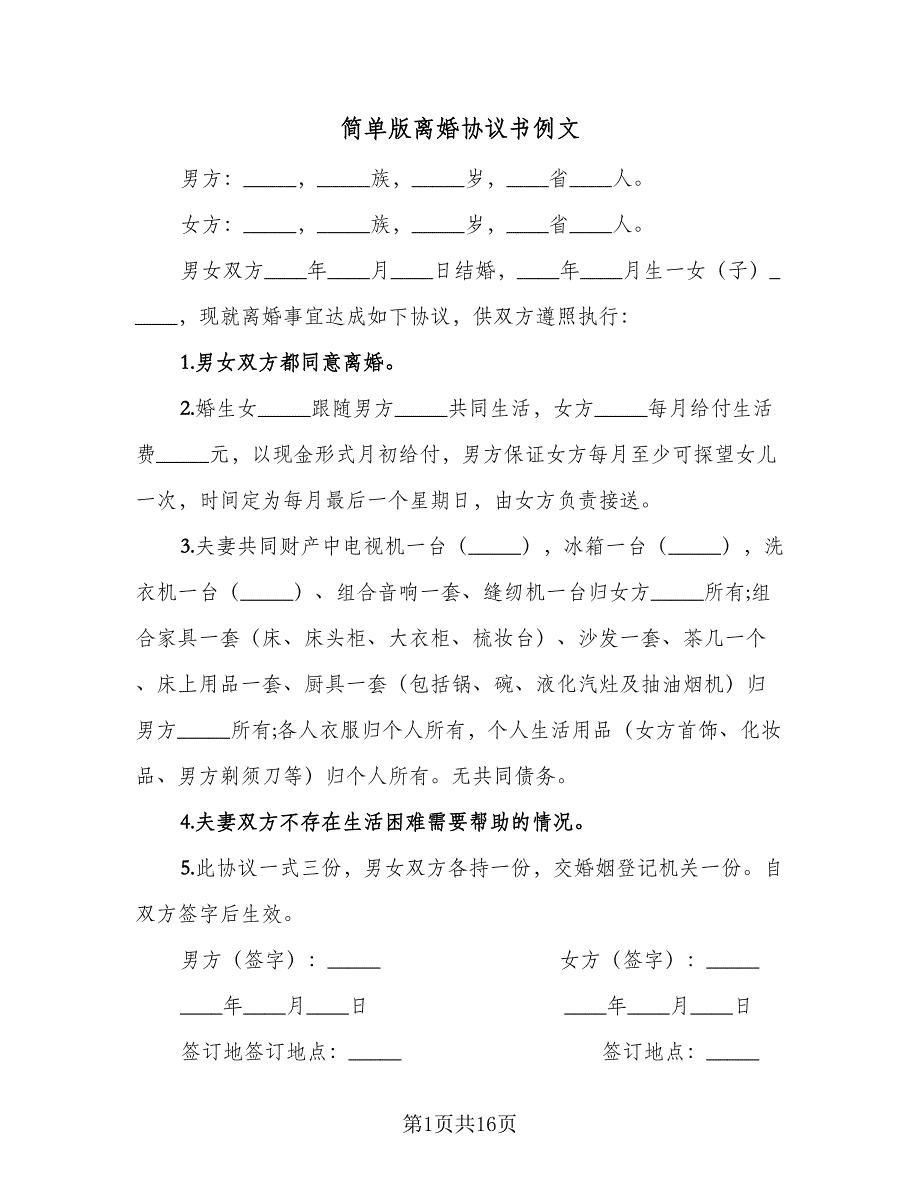 简单版离婚协议书例文
男方：_____，_____族，_____岁，____省____人。
女方：_____，_____族，_____岁，____省____人。
男女双方____年____月____日结婚，____年____月生一女（子）_
____，现就离婚事宜达成如下协议，供双方遵照执行：
1.男女双方都同意离婚。
2.婚生女_____跟随男方_____共同生活，女方_____每月给付生活
费_____元，以现金形式月初给付，男方保证女方每月至少可探望女儿
一次，时间定为每月最后一个星期日，由女方负责接送。
3.夫妻共同财产中电视机一台（_____），冰箱一台（_____），洗
衣机一台（_____）、组合音响一套、缝纫机一台归女方_____所有;组
合家具一套（床、床头柜、大衣柜、梳妆台）、沙发一套、茶几一个
、床上用品一套、厨具一套（包括锅、碗、液化汽灶及抽油烟机）归
男方_____所有;各人衣服归个人所有，个人生活用品（女方首饰、化妆
品、男方剃须刀等）归个人所有。无共同债务。
4.夫妻双方不存在生活困难需要帮助的情况。
5.此协议一式三份，男女双方各持一份，交婚姻登记机关一份。自
双方签字后生效。
男方（签字）：_____ 女方（签字）：_____
____年____月____日 ____年____月____日
签订地签订地点：_____ 签订地点：_____
第1页共16页